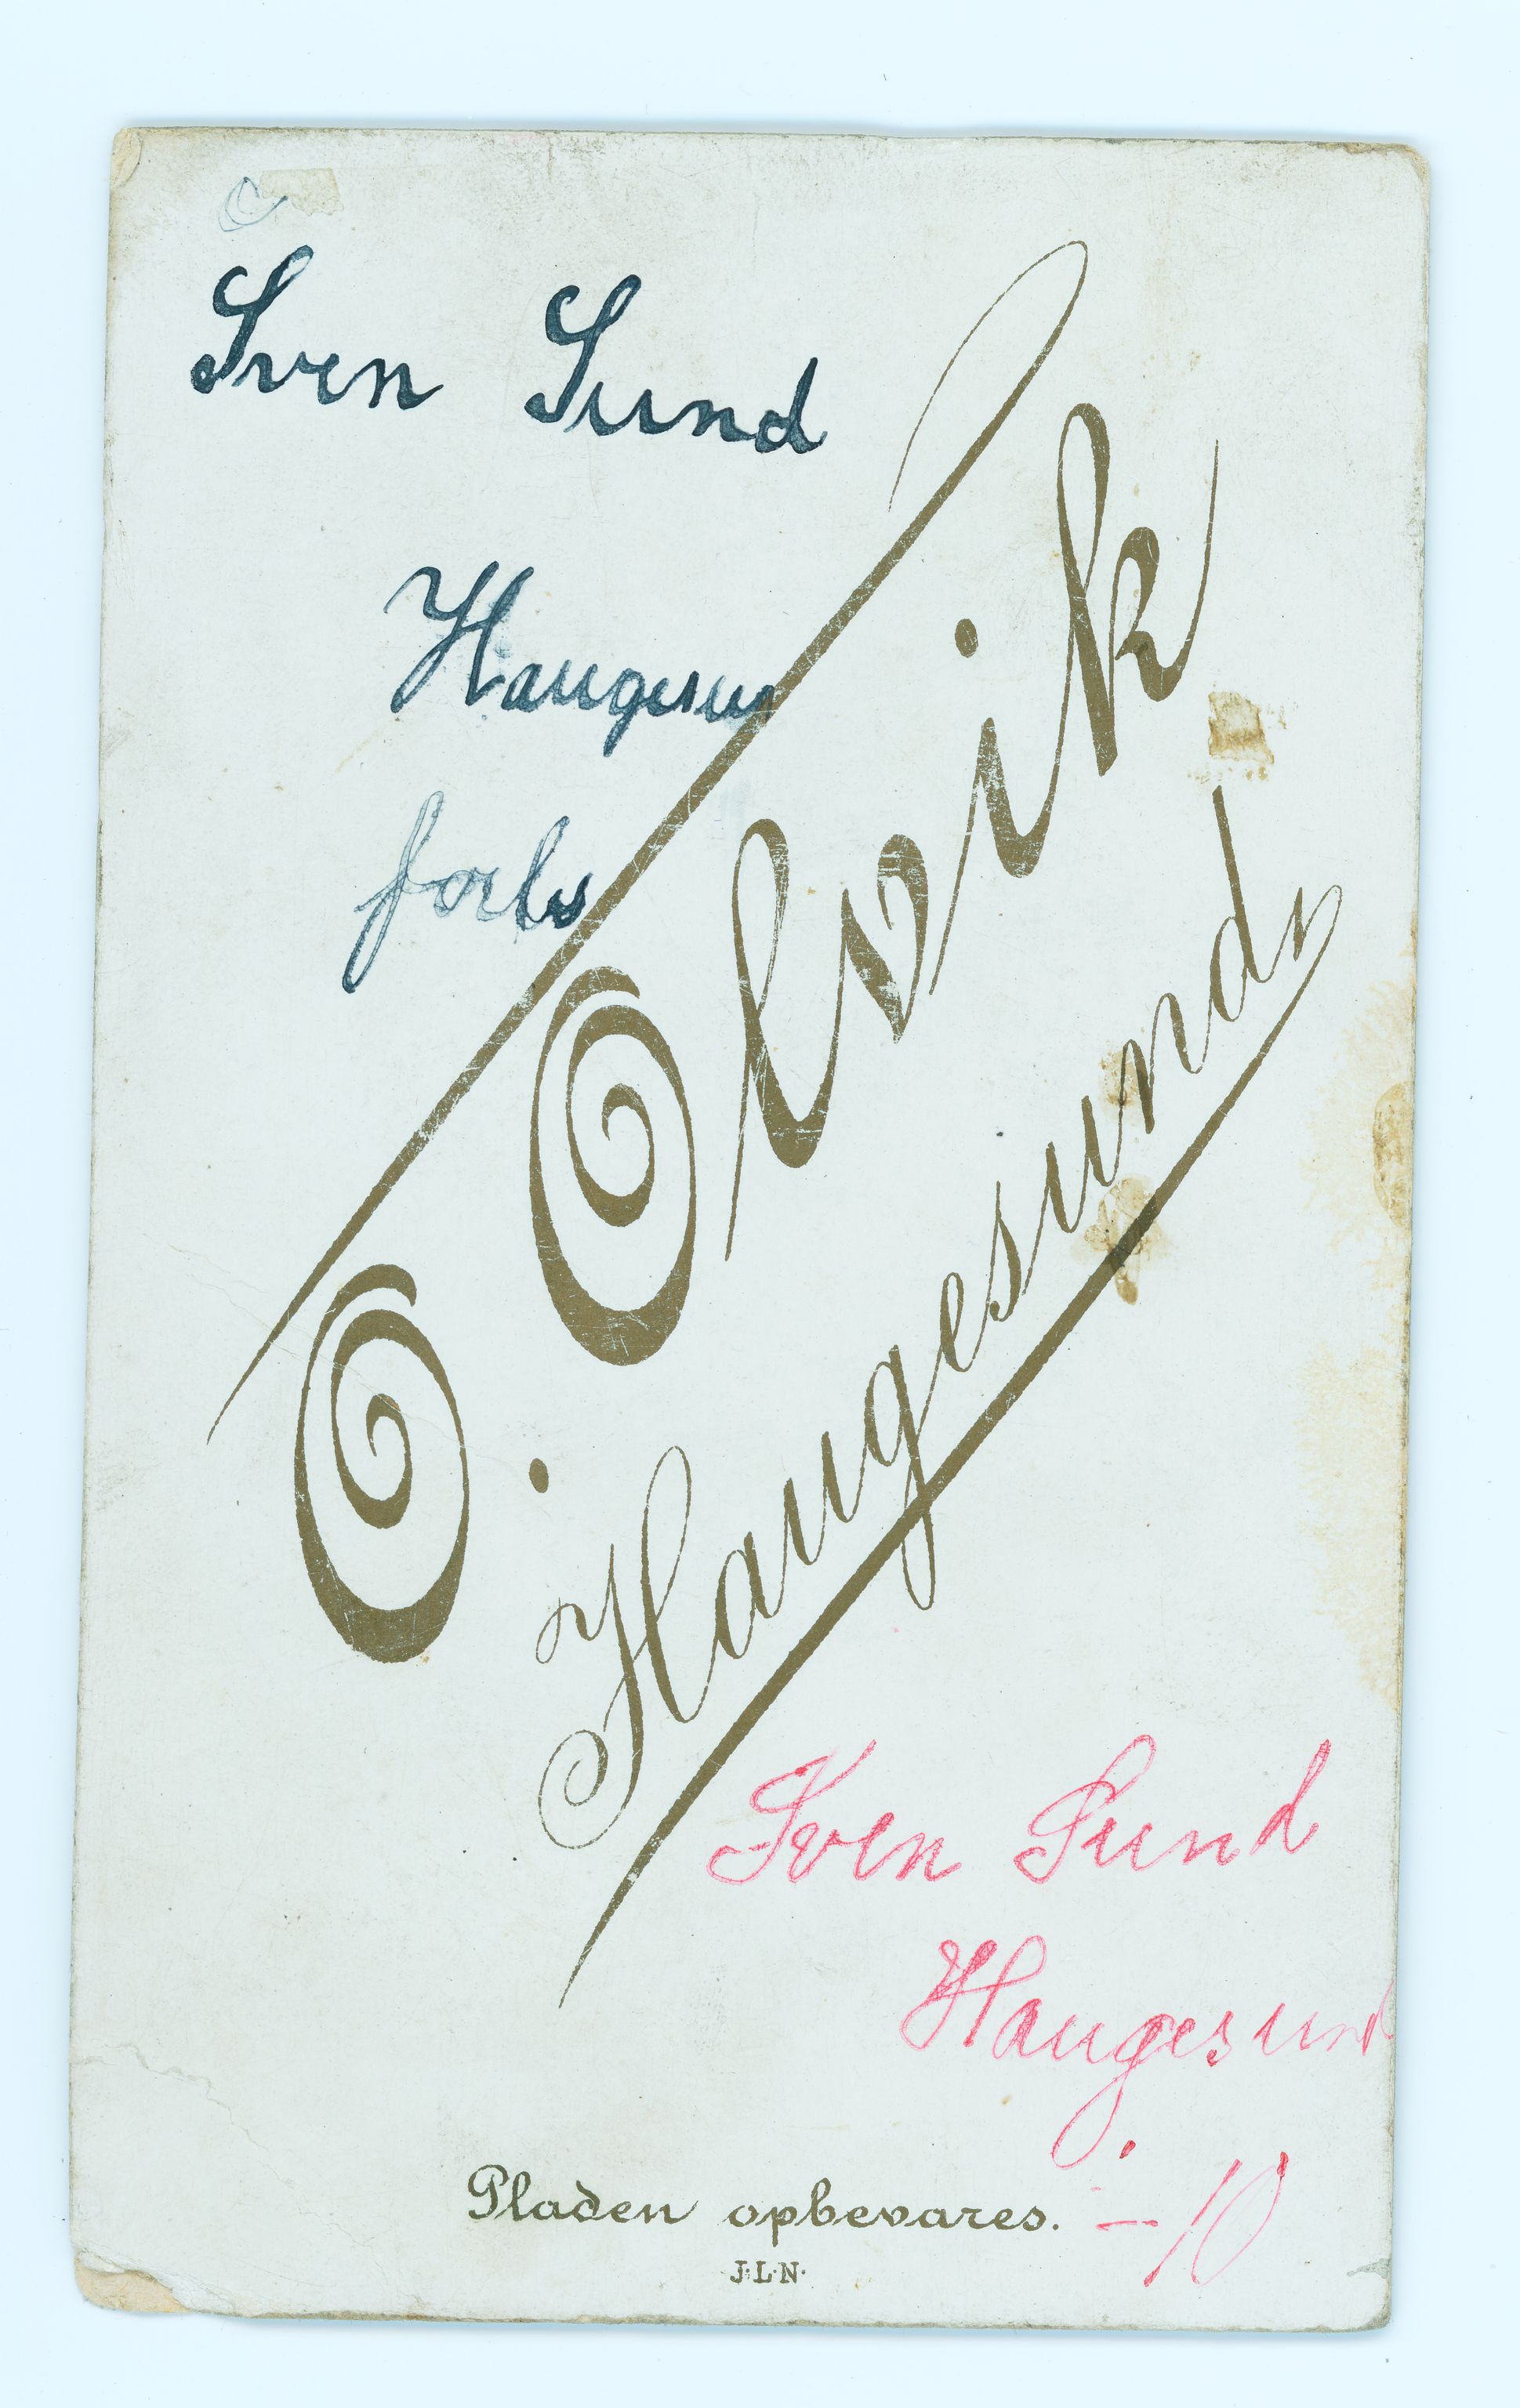 Sven Sund
Haugesun
O. Olvik
Haugesund,
Sven Sund
Haugesund
Pladen opbevares. - 10
J·L·N·